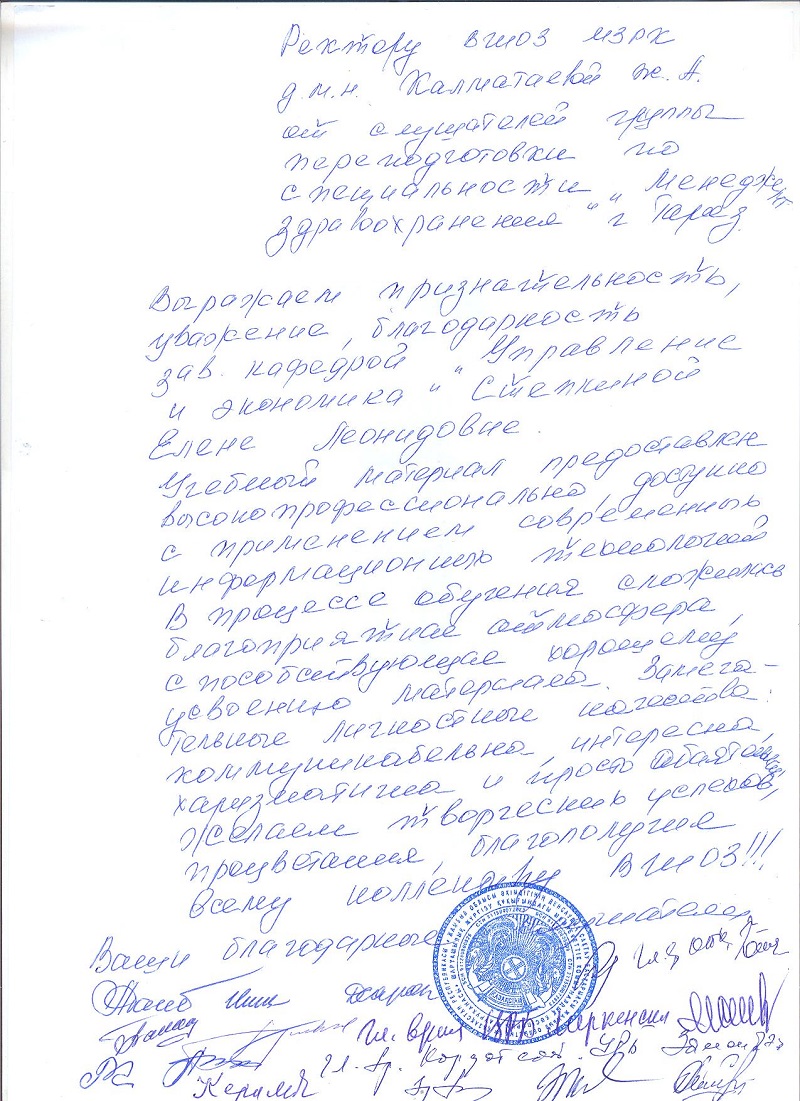 Ректору ВШОЗ МЗРК
д.м.н. Калматаевой Ж.А.
от слушателей группы
переподготовки по
специальности "Менеджмент
здравоохранения" г Тараз.
Выражаем признательность,
уважение, благодарность
зав. кафедрой "Управление
и экономика" Степкиной
Елене Леонидовне.
Учебный материал предоставлен
высокопрофессионально, доступно
с применением современных
информационных технологий
В процессе обучения сложилась
благоприятная атмосфера,
способствующая хорошему
усвоению материала. Замеча-
тельные личностные качества:
коммуникабельна, интересна,
харизматична и просто обаятельна,
Желаем творческих успехов,
процветания, благополучия
всему коллективу ВШОЗ!!!
Ваши благодарные слушатели
Гл врач
Гл. вр. Кордайской ЦРБ
Керимов